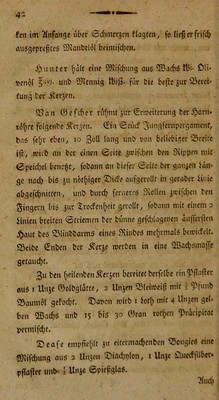 42
ken im Anfange über Schmerzen klagten, so ließ er frisch
ausgepreßtes Mandelöl beimischen.
Hunter hält eine Mischung aus Wachs Oli-
venöl und Mennig für die beste zur Berei-
tung der Kerzen.
Van Gescher rühmt zur Erweiterung der Harn-
röhre folgende Kerzen. Ein Stück Jungfernpergament,
das sehr eben, 10 Zoll lang und von beliebiger Breite
ist, wird an der einen Seite zwischen den Lippen mit
Speichel benetzt, sodann an dieser Seite der ganzen Län-
ge nach bis zu nöthiger Dicke aufgerollt in gerader Linie
abgeschnitten, und durch ferneres Rollen zwischen den
Fingern bis zur Trockenheit gerollt, sodann mit einem 2
Linien breiten Striemen der dünne geschlagenen äussersten
Haut des Blinddarms eines Rindes mehrmals bewickelt.
Beide Enden der Kerze werden in eine Wachsmasse
getaucht.
Zu den heilenden Kerzen bereitet derselbe ein Pflaster
aus 1 Unze Goldglätte, 2 Unzen Bleiweiß mit Pfund
Baumöl gekocht. Davon wird 1 Loth mit 4 Unzen gel-
ben Wachs und 15 bis 30 Gran rothem Präcipitat
vermischt.
Dease empfiehlt zu eiternachenden Bougies eine
Mischung aus 2 Unzen Diachylon, 1 Unze Quecksilber-
pflaster und Unze Spießglas.
Auch